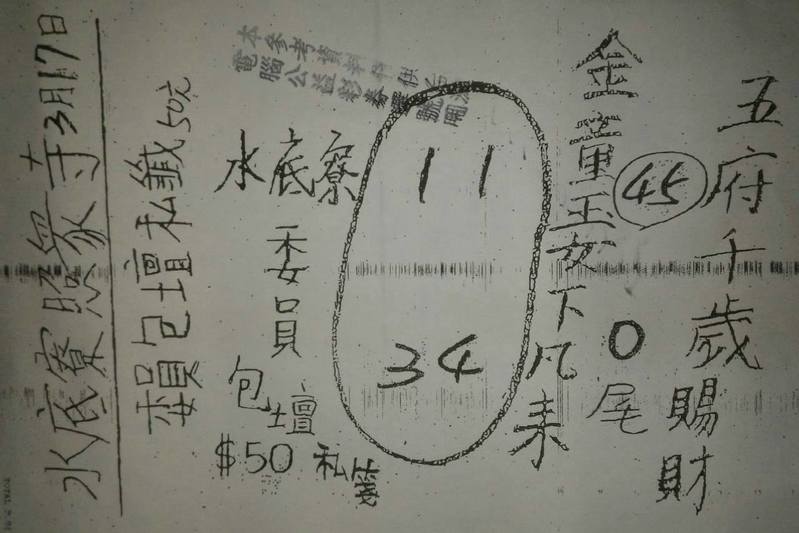 五府千歲賜財
45
0尾
金童玉女下凡來
11
34
本參考資料
電腦公益彩券
水底寮
委員
包壇
$50 私籤
委員包壇私籤50元
水底寮照眾寺3月17日